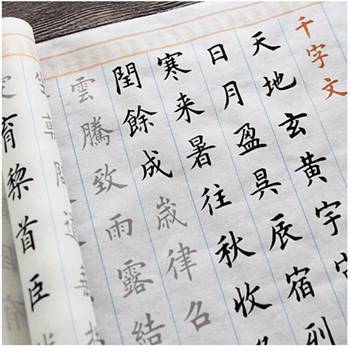 千字文
天地玄黃宇
日月盈昃辰宿列
寒来暑往秋收
閏餘成歲律召
雲騰致雨露結
育黎首臣